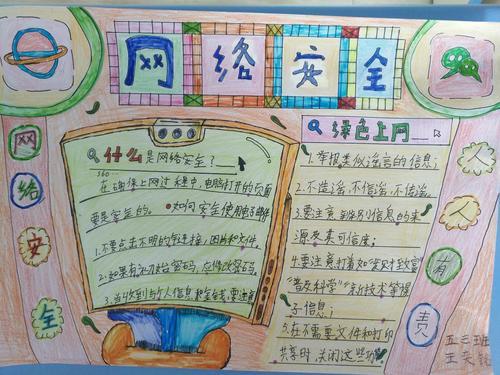 网络安全
什么是网络安全?
在确保上网过程中,电脑打开的页面
都是安全的。 如何安全使用电子邮件
1.不要点击不明的链接,图片和文件。
2.如果有初始密码,应修改密码。
3.当收到与个人信息和金钱
要注意
绿色上网
1.举报类似谣言的信息;
2.不造谣,不信谣,不传谣。
3.要注意辨别信息的来
源及其可信度;
4.要注意打着如"发财致富"
"普及科学""新技术
子信息;
5.在不需要文件和打印
共享时,关闭这些功
网络安全
人人有责
五三班